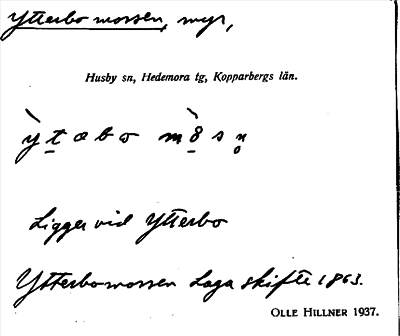 Ytterbo mossen, myr,
Husby sn, Hedemora tg, Kopparbergs län.
Ligger vid Ytterbo
Ytterbomossen Laga skifte 1863.
OLLE HILLNER 1937.